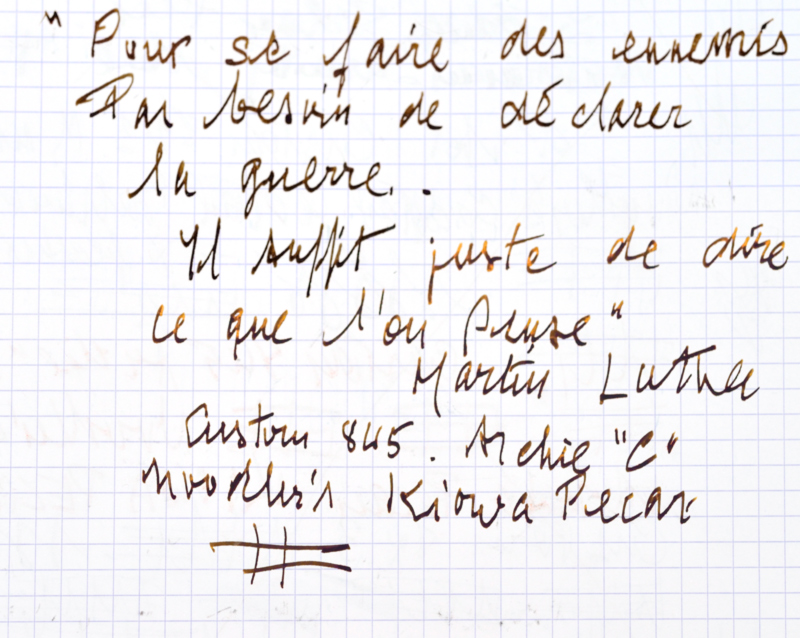 " Pour se faire des ennemis
Pas besoin de déclarer
la guerre.
Il suffit juste de dire
ce que l'on pense"
Martin Luther
Custom 845. Archie "C"
Noodler's Kiowa Pecan